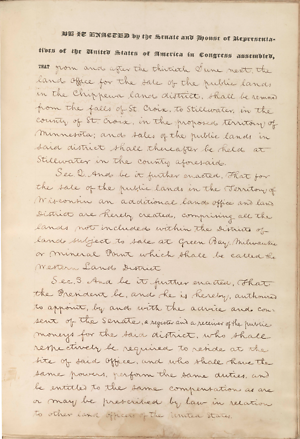 BE IT ENACTED by the Senate and House of Representa-
tives of the United States of America in Congress assembled,
THAT from and after the thirtieth June next the
land office for the sale of the public lands
in the Chippewa land district, shall be removed
from the falls of St Croix, to Stillwater, in the
county of St Croix, in the proposed territory of
Minnesota; and sales of the public lands in
said district, shall thereafter be held at
Stillwater in the county aforesaid.
Sec 2. And be it further enacted, That for
the sale of the public lands in the Territory of
Wisconsin an additional land office and land
District are hereby created, comprising all the
lands not included within the Districts of
land subject to sale at Green Bay, Milwaukie
or Mineral Point which shall be called the
Western Land District
Sec. 3 And be it further enacted, That
the President be, and he is hereby, authorized
to appoint, by and with the advice and con-
sent of the Senate, a register and a receiver of the public
moneys for the said district, who shall
respectively be required to reside at the
site of said office, and who shall have the
same powers, perform the same duties, and
be entitled to the same compensation as are
or may be prescribed by law in relation
to other land offices of the United States.